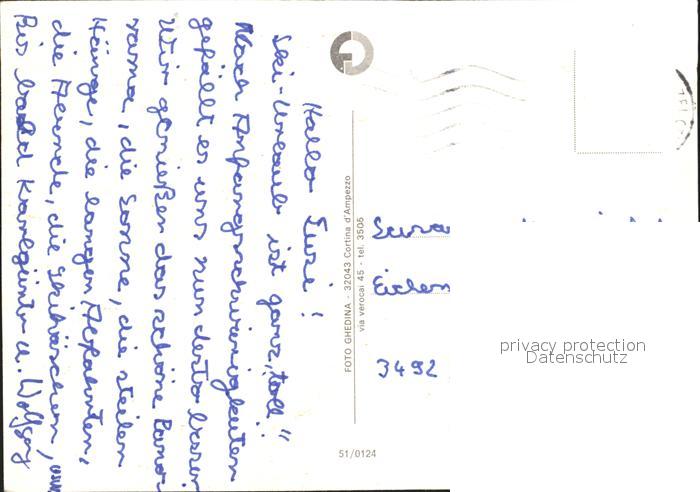 Hallo Susi!
Ski-Urlaub ist ganz „toll“!
Nach Anfangsschwierigkeiten
gefällt es uns nun desto besser.
Wir genießen das schöne Pano-
rama, die Sonne, die steilen
Hänge, die langen Abfahrten,
die Abende, die Skihäschen,
Bis bald Karlgünter u. Wolfgang
FOTO GHEDINA - 32043 Cortina d'Ampezzo
via verocai 45 - tel. 3505
51/0124
3492
privacy protection
Datenschutz